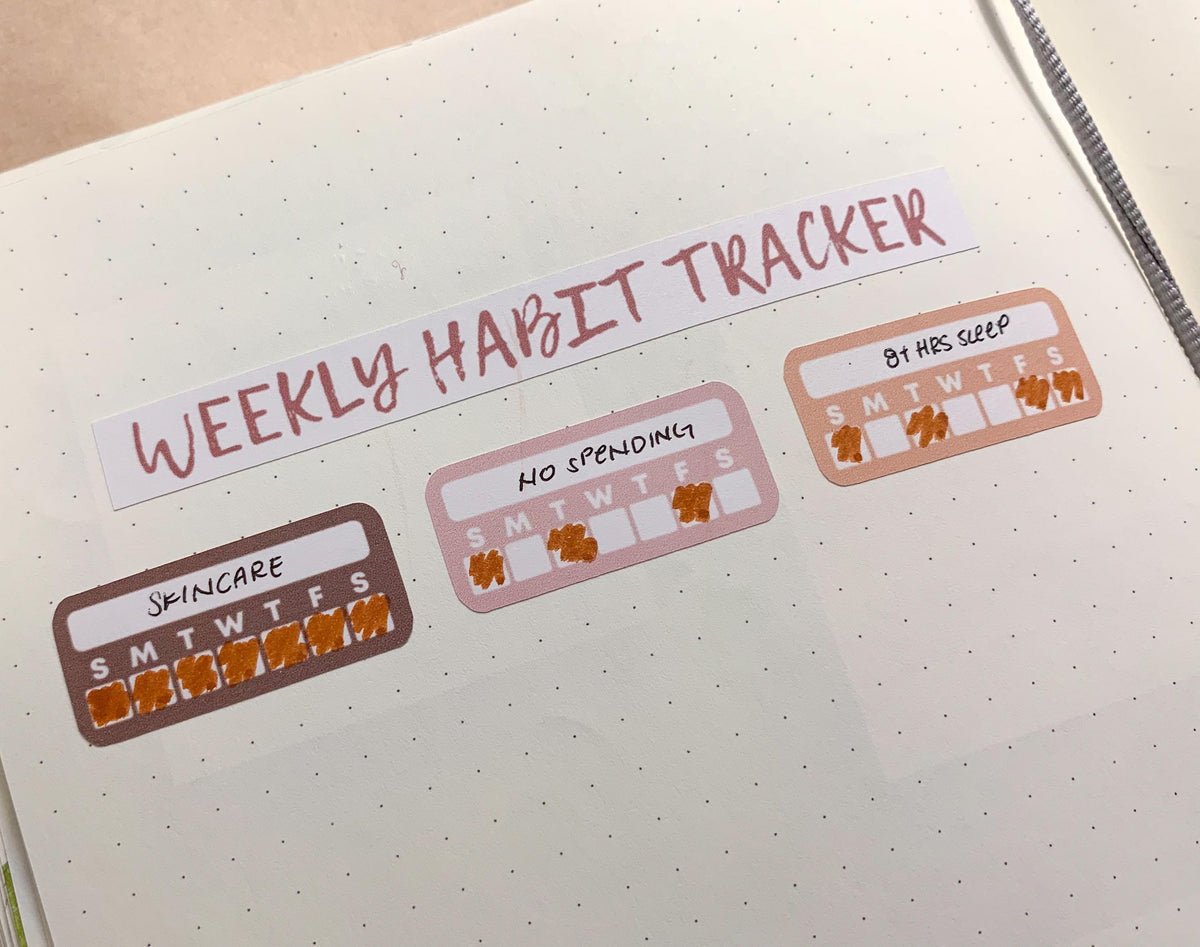 WEEKLY HABIT TRACKER
SKINCARE
S M T W T F S
NO SPENDING
S M T W T F S
8+ HRS SLEEP
S M T W T F S